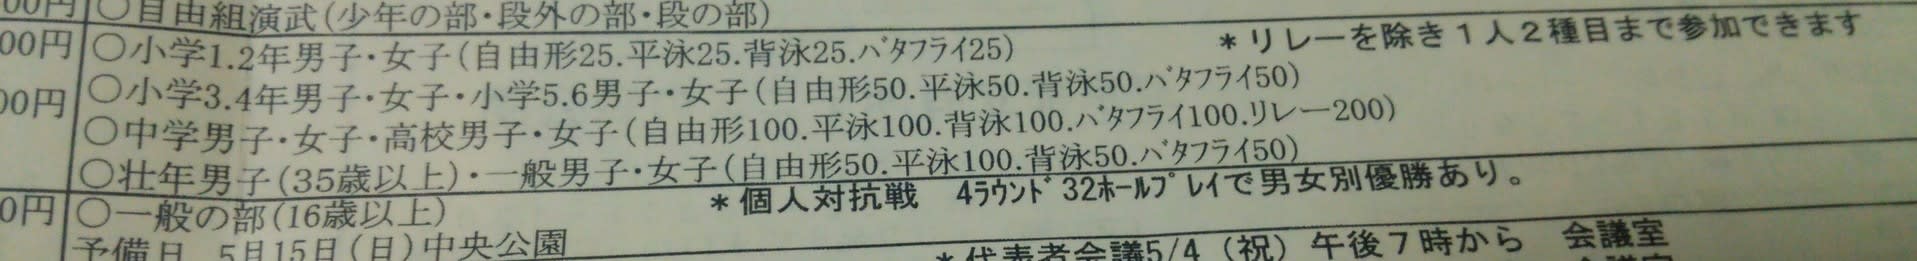 00円 ○自由組演武(少年の部・段外の部・段の部)
00円 ○小学1.2年男子・女子(自由形25.平泳25.背泳25.バタフライ25) *リレーを除き1人2種目まで参加できます
00円 ○小学3.4年男子・女子・小学5.6男子・女子(自由形50.平泳50.背泳50.バタフライ50)
○中学男子・女子・高校男子・女子(自由形100.平泳100.背泳100.バタフライ100.リレー200)
○壮年男子(35歳以上)・一般男子・女子(自由形50.平泳100.背泳50.バタフライ50)
0円 ○一般の部(16歳以上) *個人対抗戦 4ラウンド32ホールプレイで男女別優勝あり。
予備日 5月15日(日)中央公園
*代表者会議5/4(祝)午後7時から 会議室